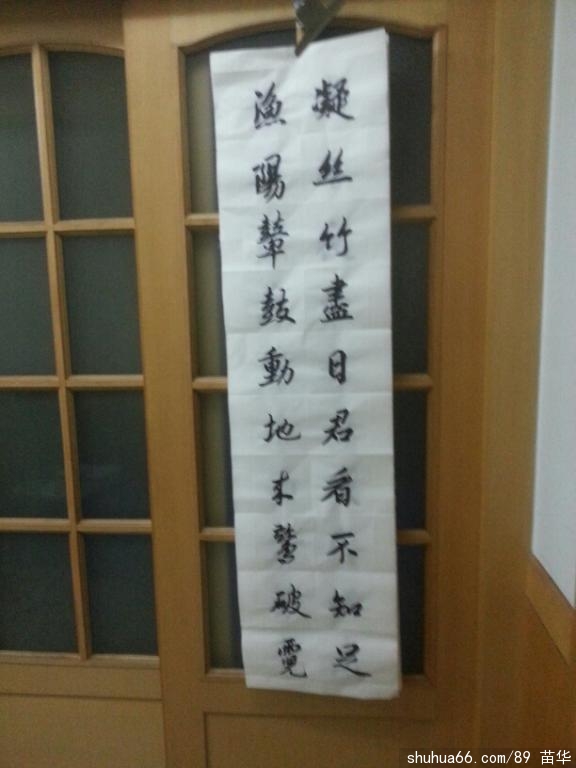 凝丝竹盡日君看不知足
漁陽鼙鼓動地来驚破霓
shuhua66.com/89 苗华